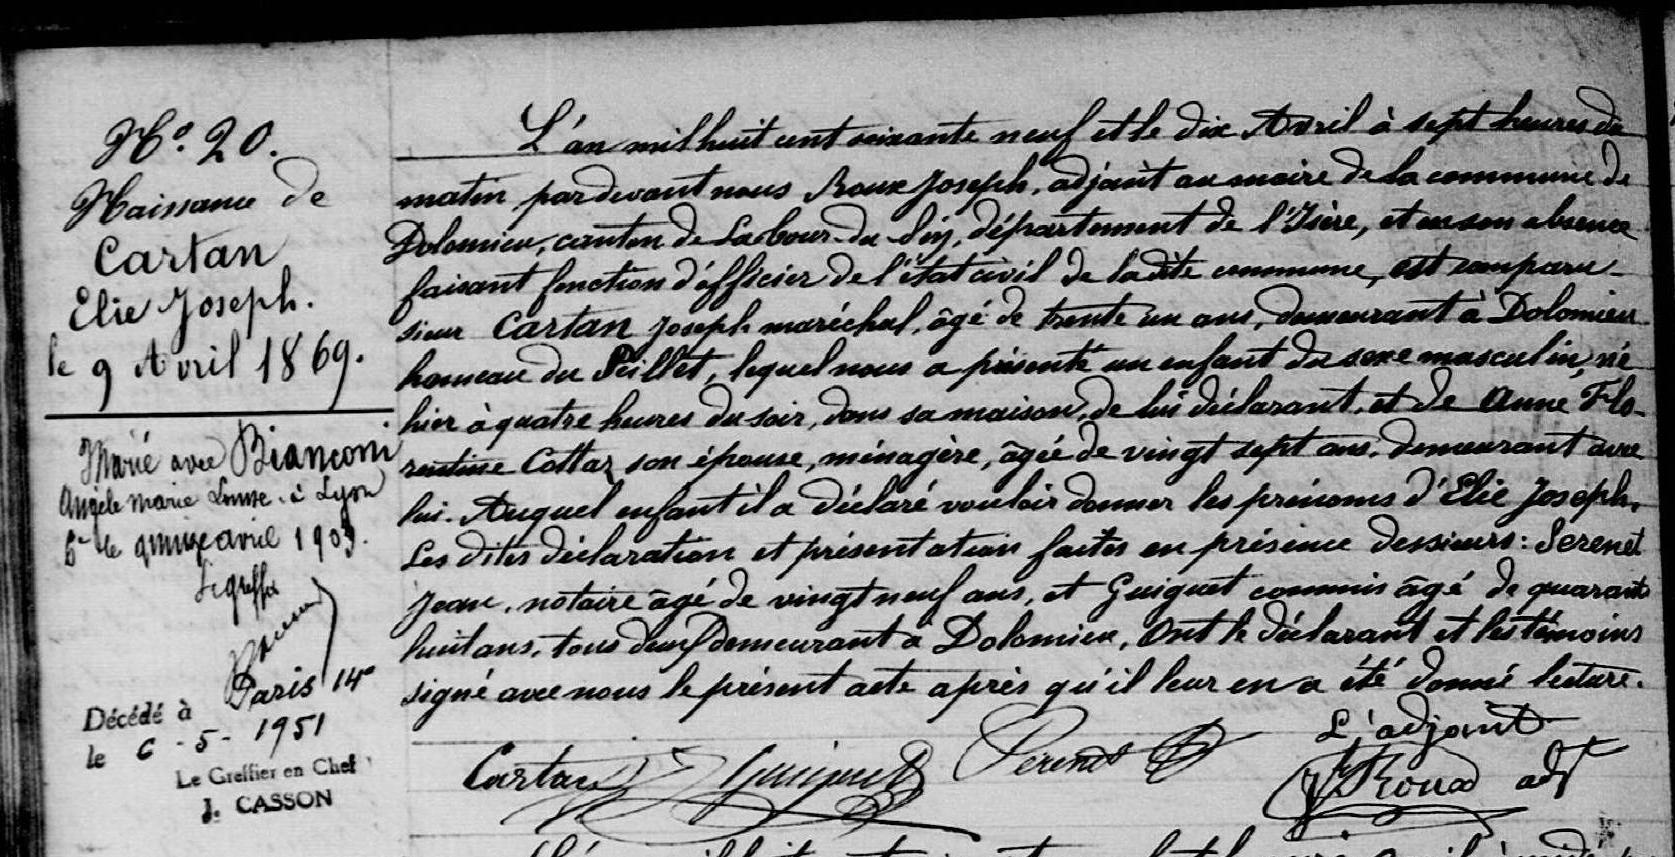 N.º 20.
Naissance de
Cartan
Elie Joseph.
le 9 Avril 1869.
Marié avec Bianconi
Angèle Marie Louise à Lyon
6e le quinze avril 1903.
Le greffier
Décédé à Paris 14e
le 6-5-1951
Le Greffier en Chef
J. CASSON
L'an mil huit cent soixante neuf et le dix Avril à sept heures du
matin, pardevant nous Roux Joseph, adjoint au maire de la commune de
Dolomieu, canton de La tour-du-pin, département de l'Isère, et en son absence
faisant fonction d'officier de l'état civil de la dite commune, est comparu
sieur Cartan Joseph maréchal, âgé de trente un ans, demeurant à Dolomieu
hameau du Peillet, lequel nous a présenté un enfant du sexe masculin, né
hier à quatre heures du soir, dans sa maison, de lui déclarant, et de Anne Flo-
rentine Cottaz son épouse, ménagère, âgée de vingt sept ans, demeurant avec
lui. Auquel enfant il a déclaré vouloir donner les prénoms d'Elie Joseph.
Les dites déclaration et présentation faites en présence des sieurs: Serenet
Jean, notaire âgé de vingt neuf ans, et Guiguet commis âgé de quarante
huit ans, tous deux demeurant à Dolomieu, Ont le déclarant et les témoins
signé avec nous le présent acte après qu'il leur en a été donné lecture.
L'adjoint
Cartan Guiguet Perenet J Roux adt